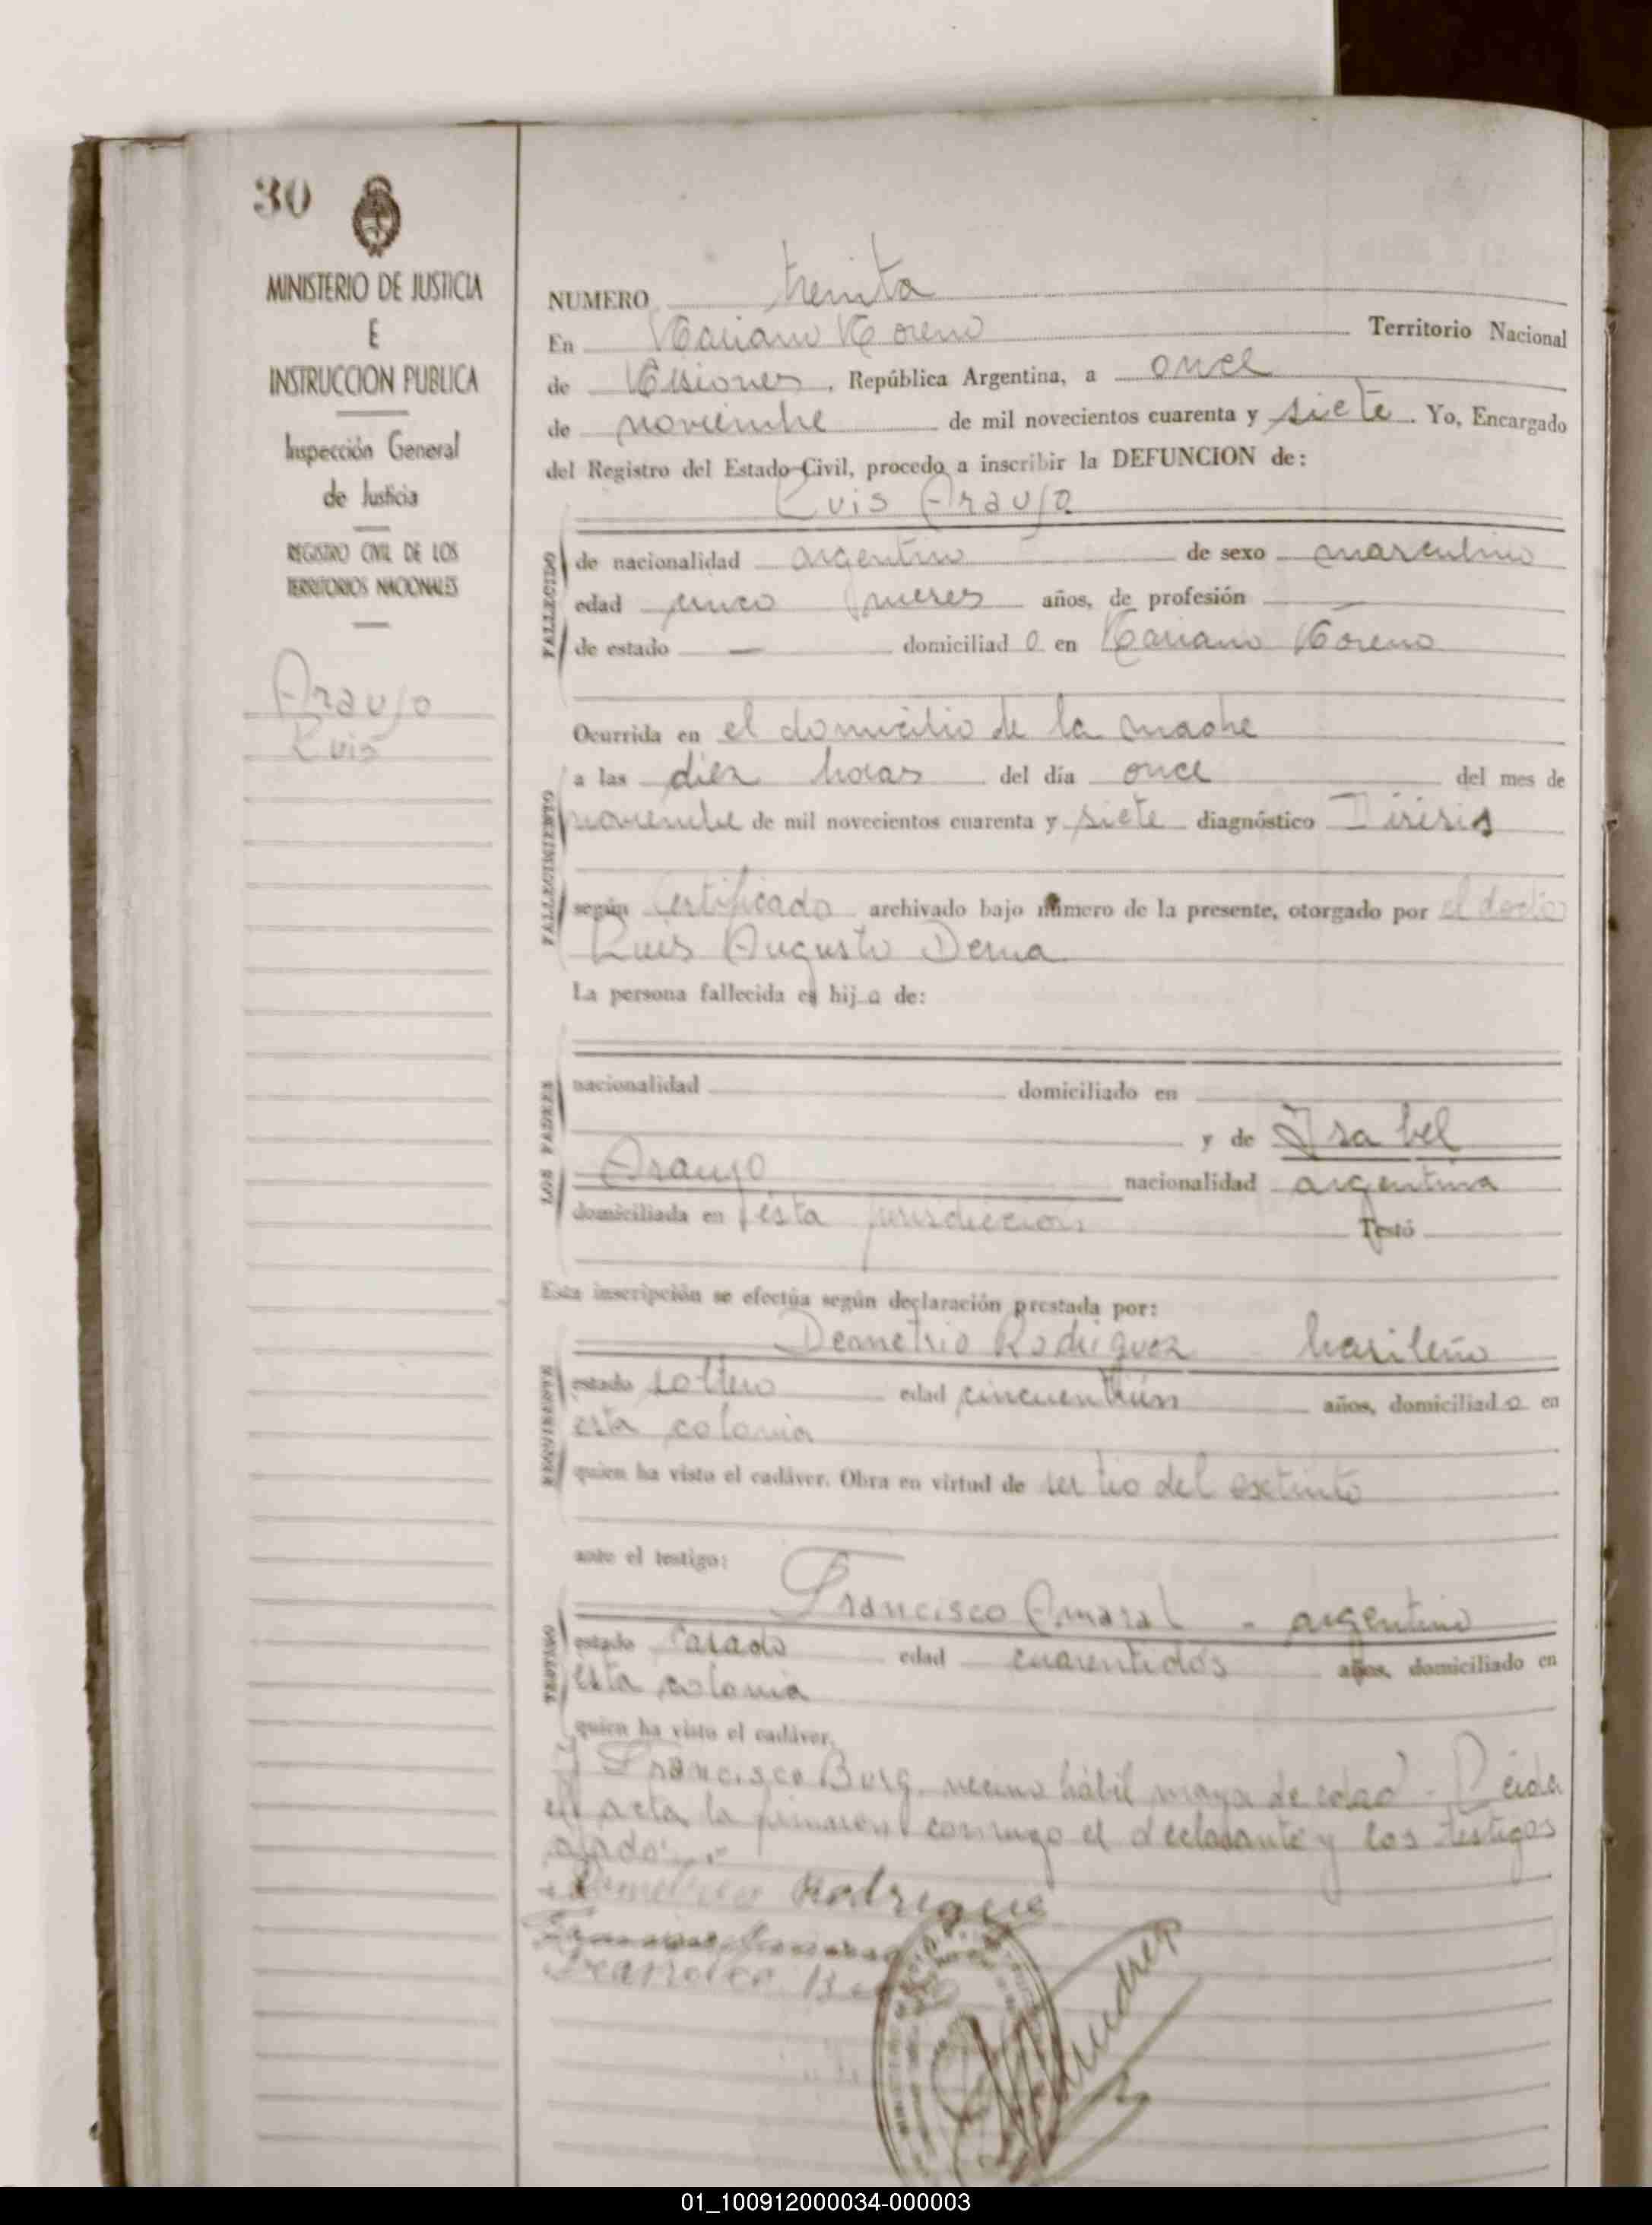 30
MINISTERIO DE JUSTICIA
E
INSTRUCCION PUBLICA
Inspección General
de Justicia
REGISTRO CIVIL DE LOS
TERRITORIOS NACIONALES
Araujo
Luis
NUMERO treinta
En Mariano Moreno Territorio Nacional
de Misiones, República Argentina, a once
de noviembre de mil novecientos cuarenta y siete. Yo, Encargado
del Registro del Estado Civil, procedo a inscribir la DEFUNCION de:
Luis Araujo
FALLECIDO
de nacionalidad argentino de sexo masculino
edad cinco meses años, de profesión —
de estado — domiciliado en Mariano Moreno
FALLECIMIENTO
Ocurrida en el domicilio de la madre
a las diez horas del día once del mes de
noviembre de mil novecientos cuarenta y siete diagnóstico
según Certificado archivado bajo número de la presente, otorgado por el doctor
Luis Augusto Derna
La persona fallecida es hijo de:
LOS PADRES
nacionalidad domiciliado en
y de Isabel
Araujo nacionalidad argentina
domiciliada en esta jurisdicción Testó
Esta inscripción se efectúa según declaración prestada por:
Demetrio Rodriguez brasileño
REQUIRENTE
estado soltero edad cincuentiún años, domiciliado en
esta colonia
quien ha visto el cadáver. Obra en virtud de ser tio del extinto
ante el testigo:
Francisco Amaral - argentino
TESTIGO
estado casado edad cuarentidós años, domiciliado en
esta colonia
quien ha visto el cadáver.
Y Francisco Burg, vecino hábil mayor de edad - Leida
el acta la firmaron conmigo el declarante y los testigos
Demetrio Rodrigue
Francisco
01_100912000034-000003